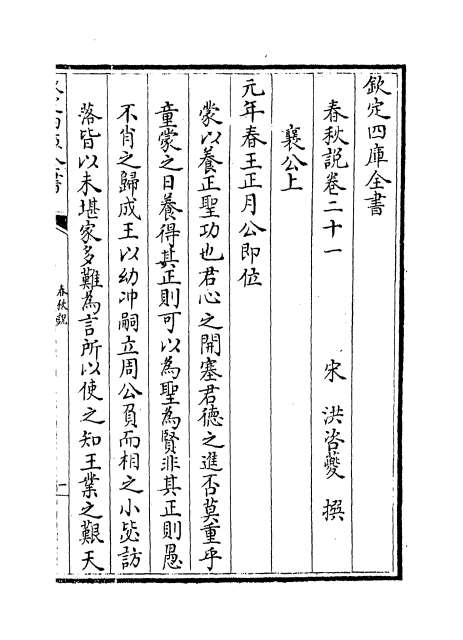 欽定四庫全書
春秋說卷二十一
宋 洪咨夔 撰
襄公上
元年春王正月公即位
蒙以養正聖功也君心之開塞君德之進否莫重乎
童蒙之日養得其正則可以為聖為賢非其正則愚
不肖之歸成王以幼冲嗣立周公負而相之小毖訪
落皆以未堪家多難為言所以使之知王業之艱天
春秋說
一